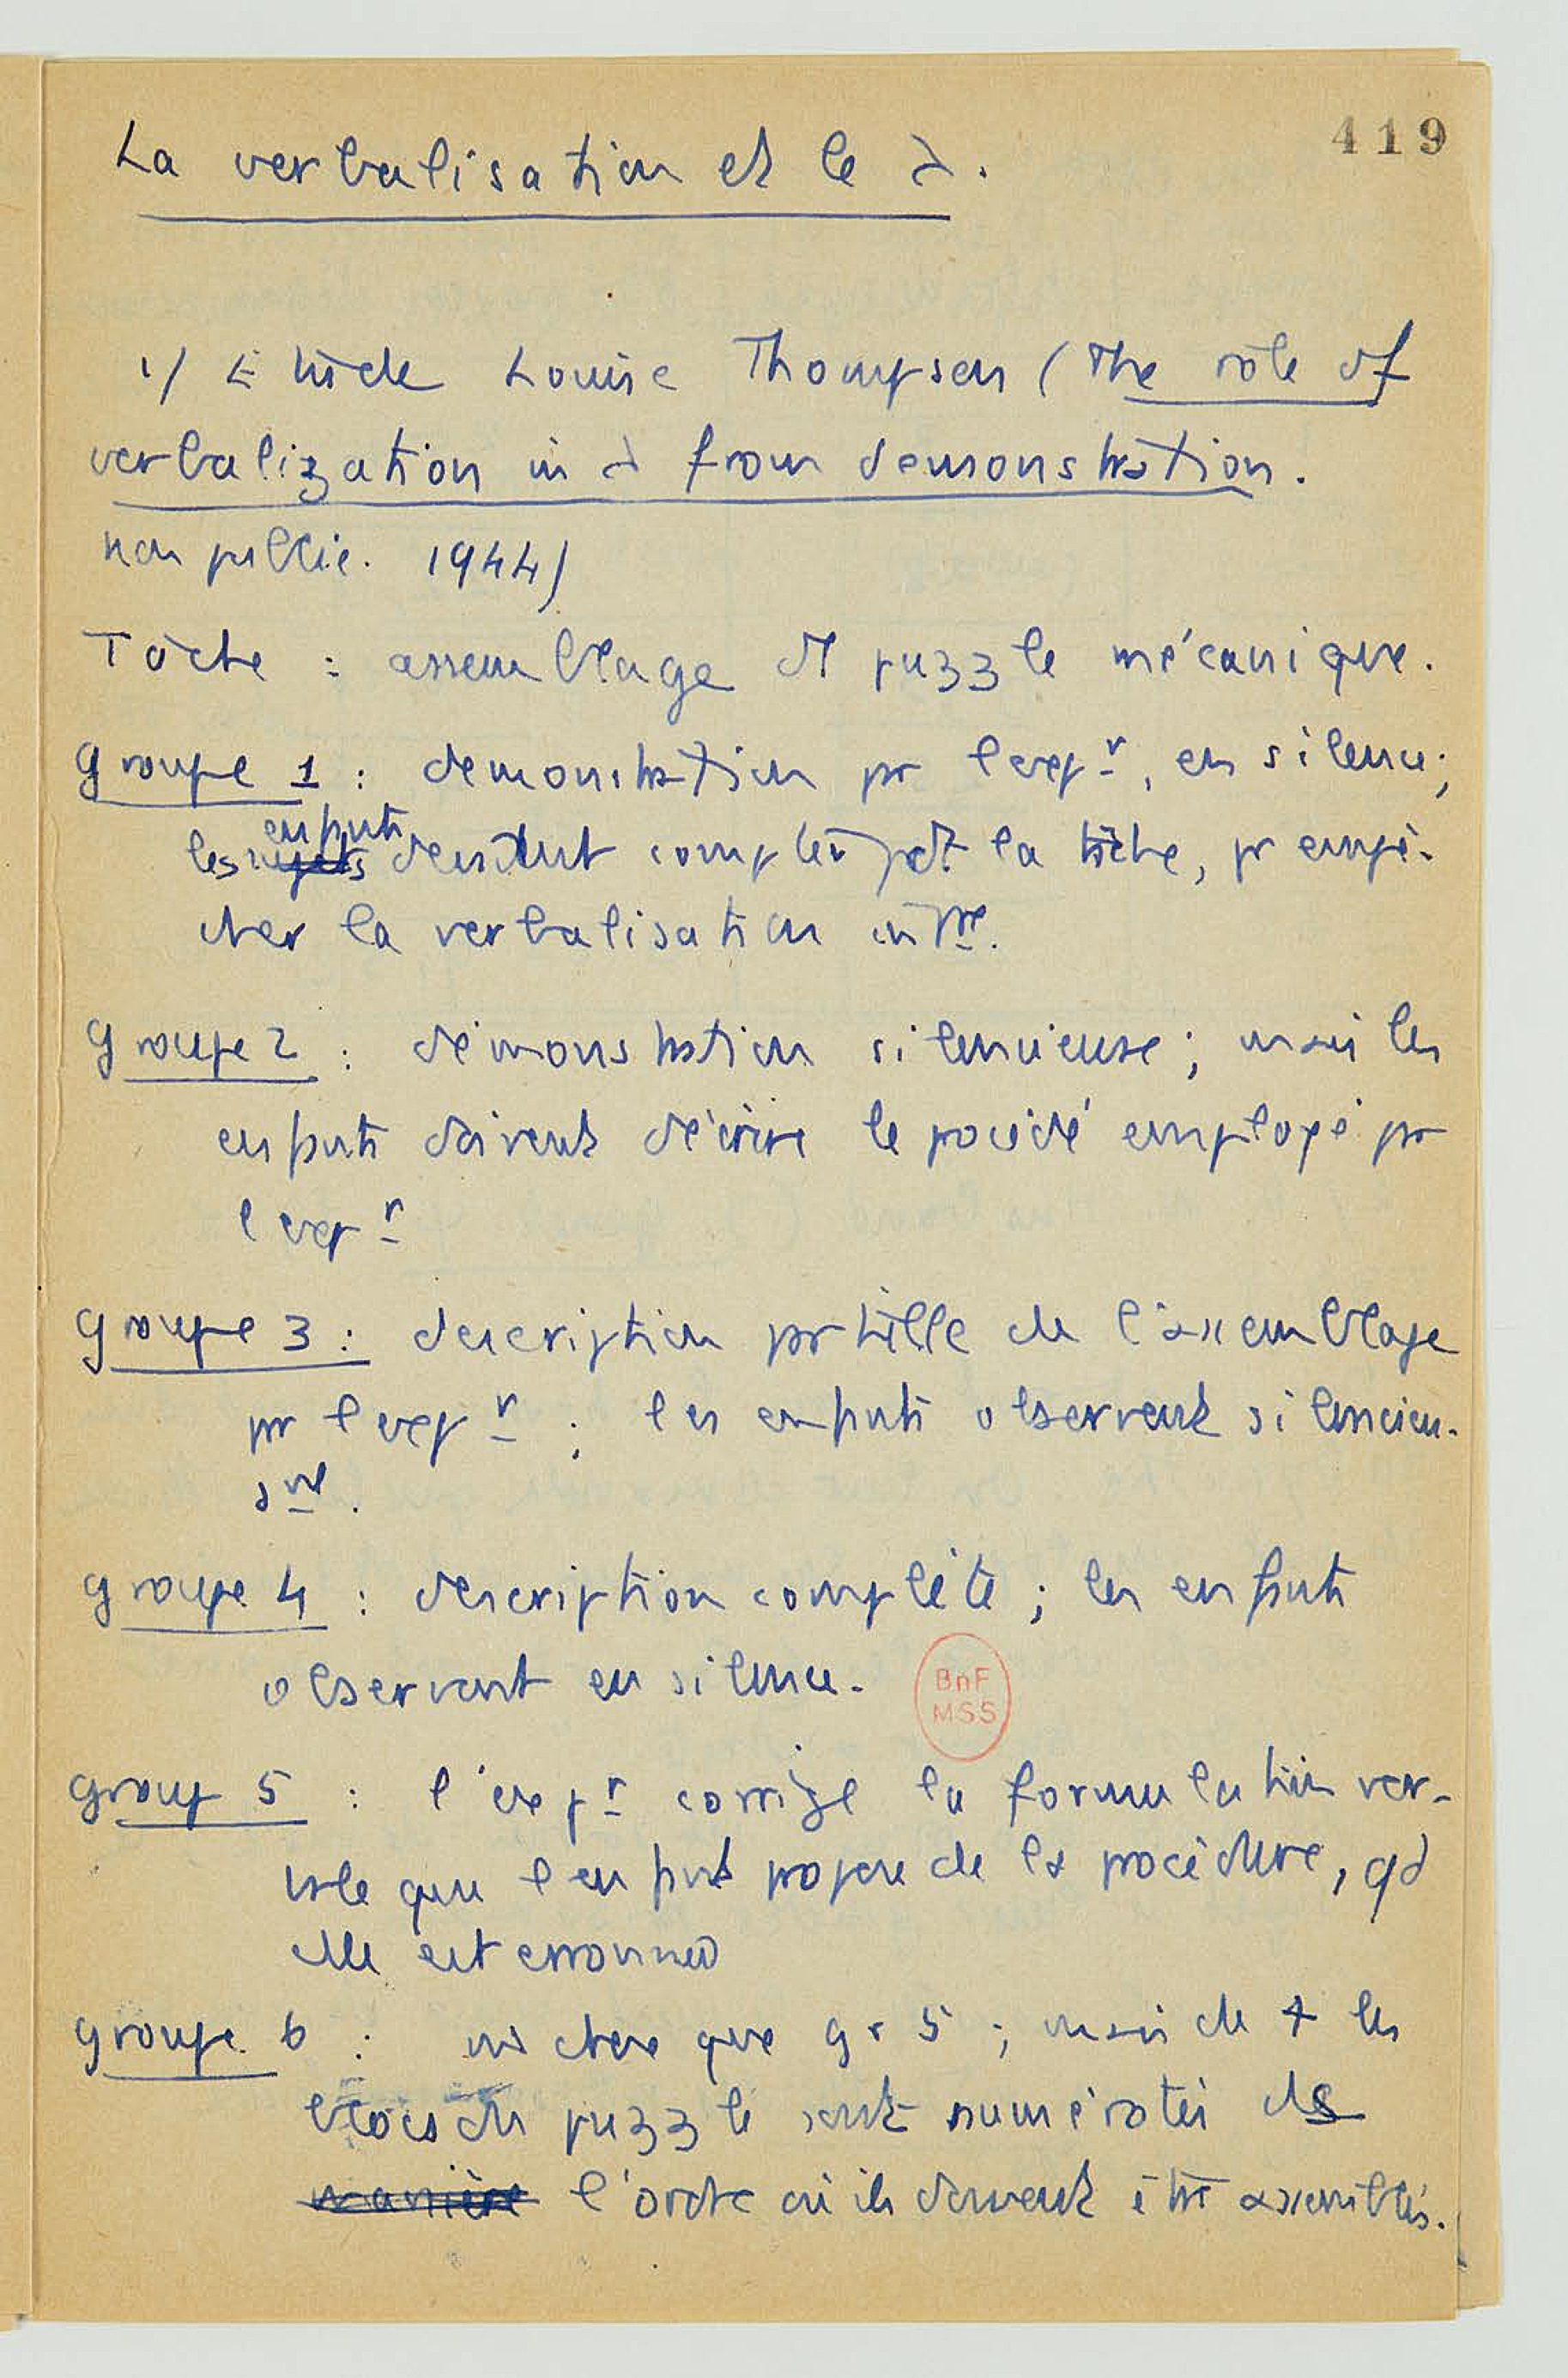 419
La verbalisation et le λ.
1/ Etude Louise Thompson (The role of
verbalization in λ from demonstration.
non publié. 1944)
Tâche : assemblage d'1 puzzle mécanique.
groupe 1 : démonstration pr l'expr, en silence;
enfants
les sujets comptent la tâche, pr empê-
cher la verbalisation
groupe 2 : démonstration silencieuse ; mais les
enfants doivent décrire le procédé employé pr
l'expr
groupe 3 : description partielle de l'assemblage
pr l'expr ; les enfants observent silencieu-
smt.
groupe 4 : description complète ; les enfants
observent en silence.
BnF
MSS
group 5 : l'expr corrige la formulation ver-
bale que l'enfant propose de la procédure, qd
elle est erronnée
groupe 6 : m chose que gr 5 ; mais de + les
blocs du puzzle sont numérotés ds
manière l'ordre où ils doivent être assemblés.